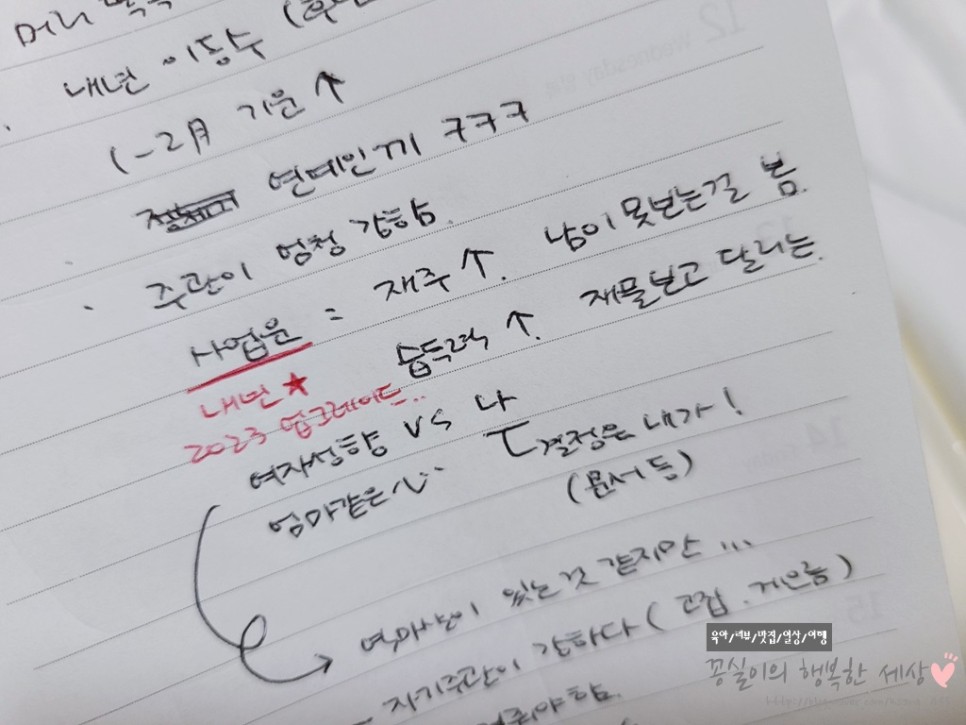 머리
내년 이동수
(-2月 기운 ↑
연예인끼 ㅋㅋㅋ
· 주관이 엄청 강함.
사업운 : 재주 ↑. 남이 못보는걸 봄.
습득력 ↑. 재물보고 달리는.
내년 ★
2023 업그레이드..
여자성향 vs 나
결정은 내가!
엄마같은 心..
(문서 등)
여자난이 있는 것 같지만 ...
자기주관이 강하다 (고집.
12 Wednesday
14
15
육아/리뷰/맛집/일상/여행
꽁실이의 행복한 세상